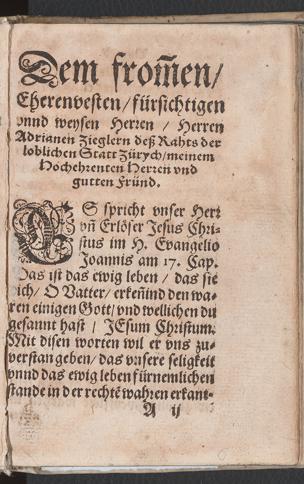 Dem from̄en/
Eherenvesten/ fürsichtigen
vnnd weysen Herren / Herren
Adrianen Zieglern deß Rahts der
loblichen Statt Zürych/ meinem
Hochehrenten Herren vnd
gutten Fründ.
ES spricht vnser Herr
vn̄ Erlöser Jesus Chri-
stus im H. Evangelio
Joannis am 17. Cap.
Das ist das ewig leben / das sie
dich/ O Vatter/ erkeñind den wa-
ren einigen Gott/ vnd wellichen du
gesannt hast / JEsum Christum.
Mit disen worten wil er vns zu-
verstan geben/ das vnsere seligkeit
vnnd das ewig leben fürnemlichen
stande in der rechtē wahren erkant-
A ij